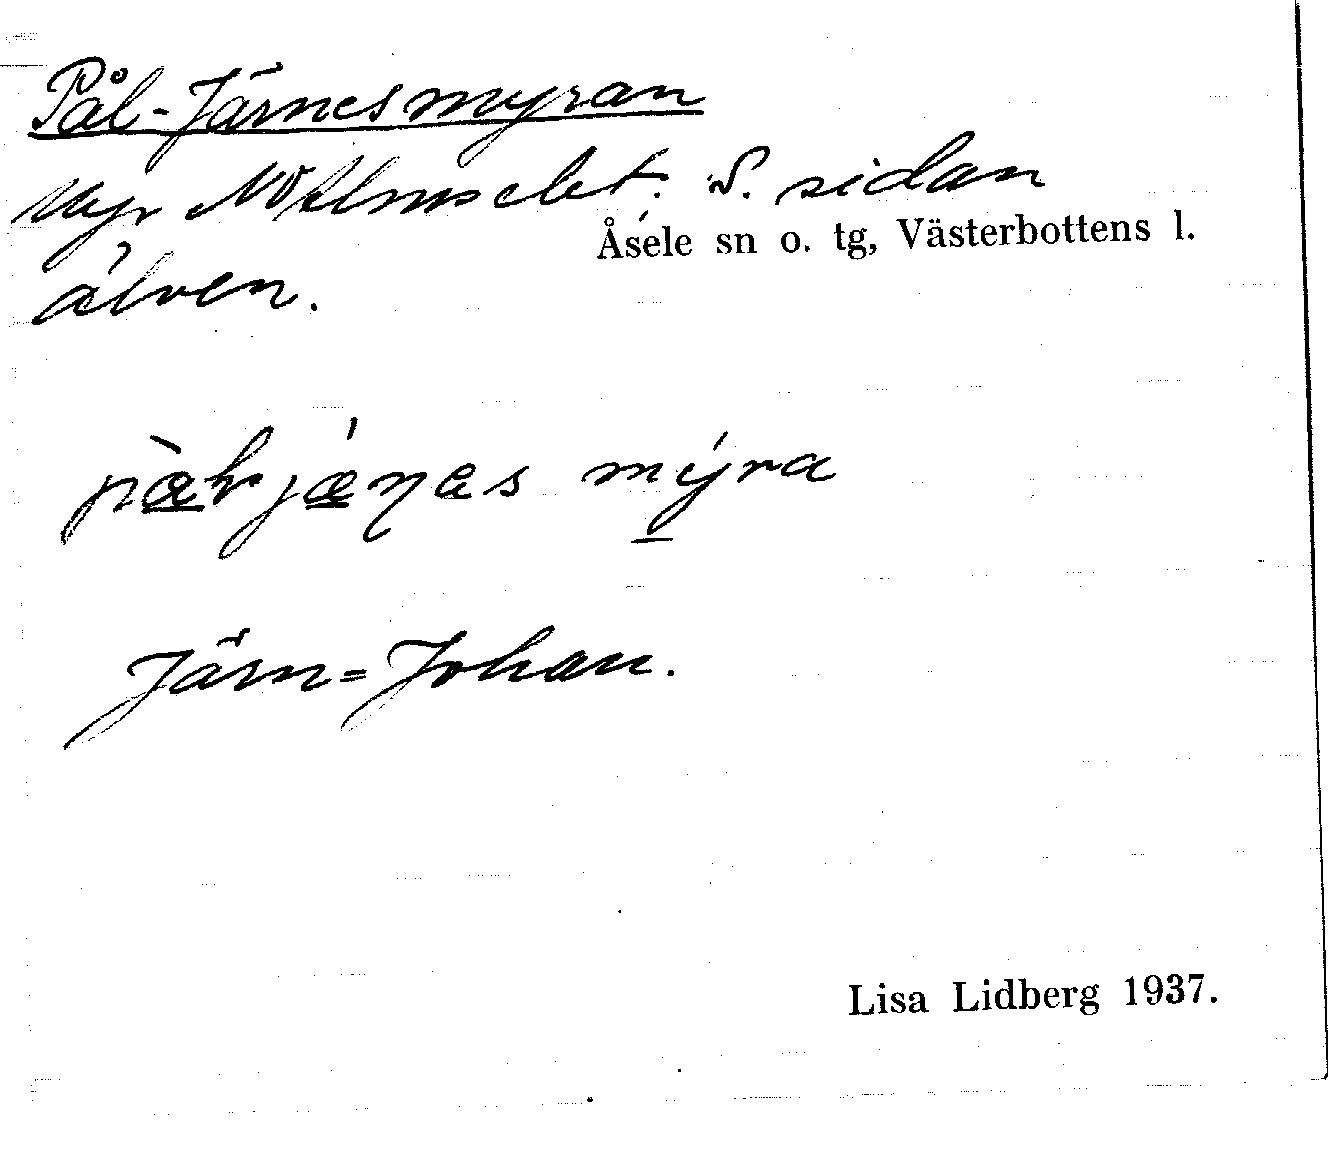 Pål-Järnesmyran
Myr NV Almselet. S. sidan
Åsele sn o. tg, Västerbottens l.
älven.
mýra
Järn-Johan.
Lisa Lidberg 1937.